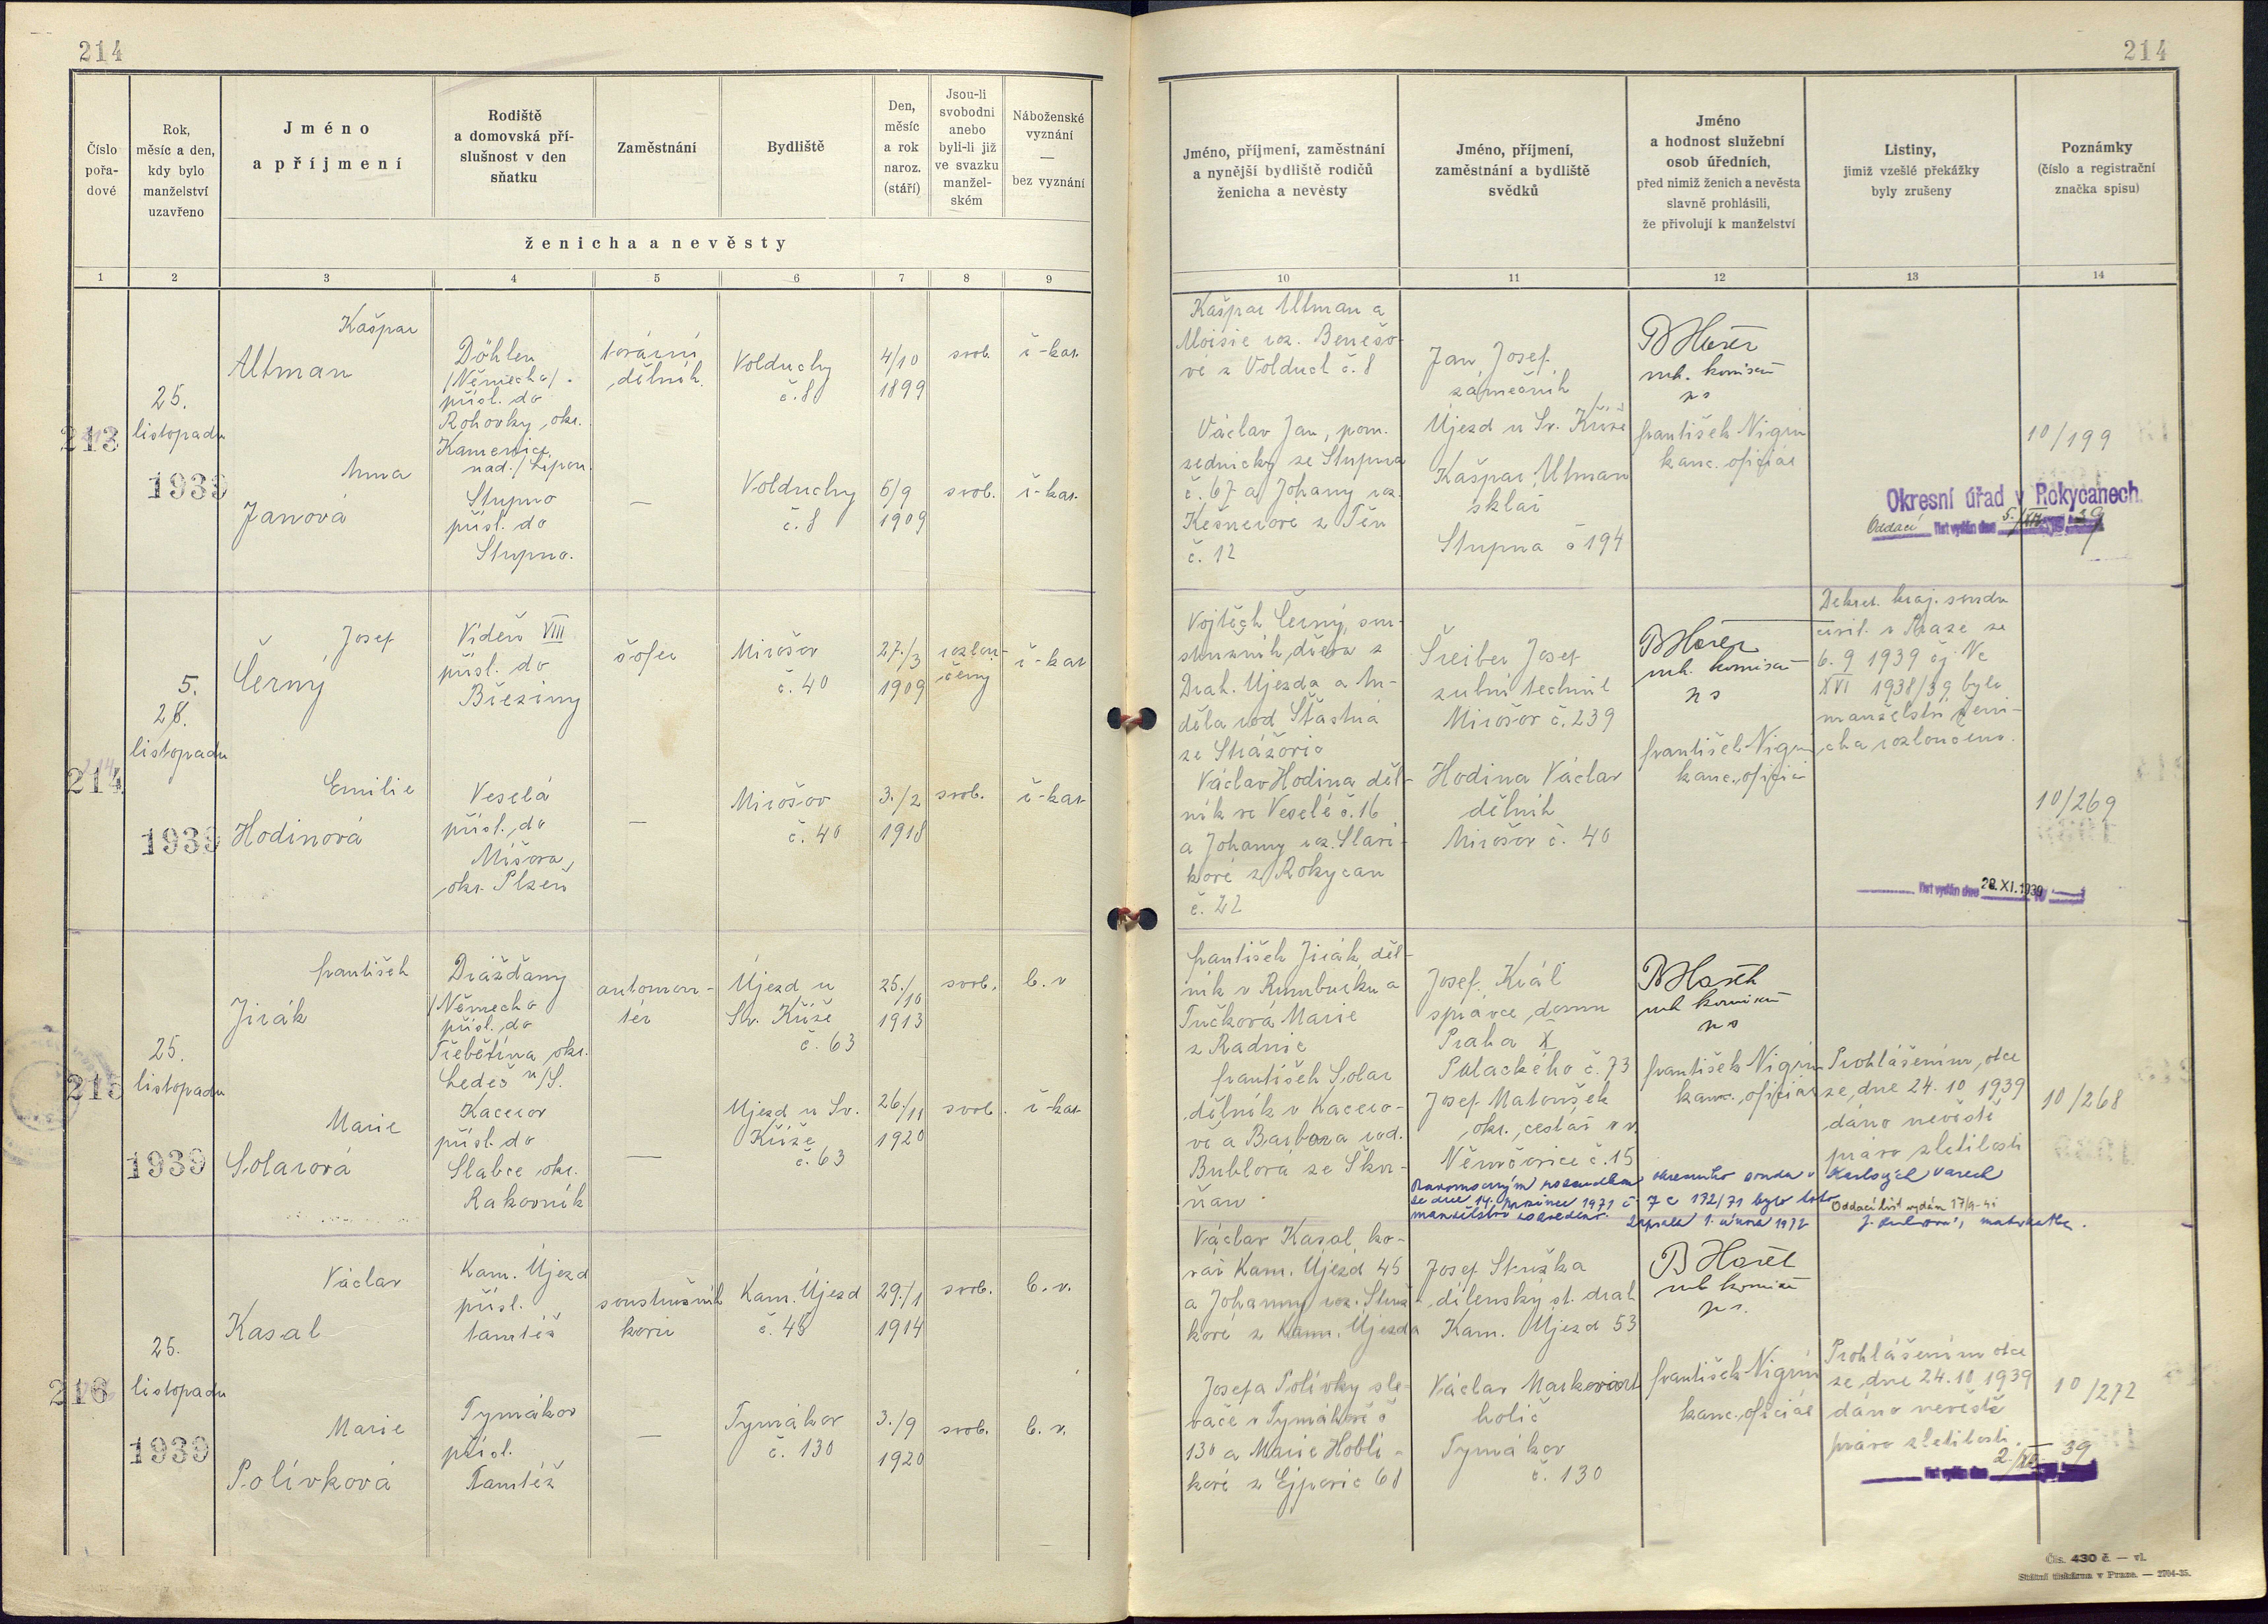 214
214
Číslo
pořa-
dové
Rok,
měsíc a den,
kdy bylo
manželství
uzavřeno
Jméno
a příjmení
Rodiště
a domovská pří-
slušnost v den
sňatku
Zaměstnání
Bydliště
Den,
měsíc
a rok
naroz.
(stáří)
Jsou-li
svobodni
anebo
byli-li již
ve svazku
manžel-
ském
Náboženské
vyznání
—
bez vyznání
ženicha a nevěsty
Jméno, příjmení, zaměstnání
a nynější bydliště rodičů
ženicha a nevěsty
Jméno, příjmení,
zaměstnání a bydliště
svědků
Jméno
a hodnost služební
osob úředních,
před nimiž ženich a nevěsta
slavně prohlásili,
že přivolují k manželství
Listiny,
jimiž vzešlé překážky
byly zrušeny
Poznámky
(číslo a registrační
značka spisu)
1 2 3 4 5 6 7 8 9 10 11 12 13 14
213
25.
listopadu
1939
Kašpar
Altman
Döhlen
/Německo/
přísl. do
Rohovky, okr.
Kamenice
nad/Lipou.
tovární
dělník.
Volduchy
č. 8
4/10
1899
svob.
ř-kat.
Anna
Janová
Stupno
přísl. do
Stupno.
—
Volduchy
č. 8
6/9
1909
svob.
ř-kat.
Kašpar Altman a
Aloisie roz. Benešo-
vé z Volduch č. 8
Václav Jan, pom.
zednický ze Stupna
č. 67 a Johany roz.
č. 12
Jan Josef
zámečník
Újezd u Sv. Kříže
Kašpar Altman
sklář
Stupna č 194
ns
František Nigrin
kanc. oficiál
Okresní úřad v Rokycanech.
Oddací list vydán dne 5./XII 39
10/199
214
5.
28.
listopadu
1939
Josef
Černý
Vídeň VIII
přísl. do
Březiny
šofer
Mirošov
č. 40
27./3
1909
rozlou-
čený
ř-kat
Emilie
Hodinová
Veselá
přísl. do
Míšova,
okr. Plzeň
—
Mirošov
č. 40
3./2
1918
svob.
ř-kat
Vojtěch Černý, sou-
stružník, dříve z
Drah. Újezda a An-
děla rod Šťastná
ze Strážovic
Václav Hodina děl-
ník ve Veselé č. 16
a Johany roz. Slaví-
kové z Rokycan
č. 22
Šreiber Josef
zubní technik
Mirošov č. 239
Hodina Václav
dělník
Mirošov č. 40
ns
František Nigrin
kanc. oficiál
Dekret. kraj. soudu
civil. v Praze ze
6. 9 1939 čj Nc
XVI 1938/39 bylo
manželství ženi-
cha rozloučeno.
list vydán dne 28. XI. 1939
10/269
215
25.
listopadu
1939
František
Jirák
Drážďany
/Německo
přísl. do
Třebětína okr.
Ledeč n/S.
automon-
tér
Újezd u
Sv. Kříže
č. 63
25./10
1913
svob.
b. v
Marie
Solarová
Kacerov
přísl. do
Slabce okr.
Rakovník
—
Újezd u Sv.
Kříže
č. 63
26./11
1920
svob.
ř-kat
František Jirák, děl-
ník v Rumburku a
Tučková Marie
z Radnic
František Solar
dělník v Kacero-
vě a Barbora rod.
Bublová ze Škvr-
ňan.
Josef Král
správce domu
Praha X
Palackého č. 73
Josef Matoušek
okr. cestář v v.
Němčovice č. 15
ns
František Nigrin
kanc. oficiál
Prohlášením otce
ze dne 24. 10 1939
dáno nevěstě
právo zletilosti
10/268
Pravomocným rozsudkem okresního soudu v Karlových Varech
ze dne 14. prosince 1971 č 7 C 172/71 bylo toto
manželství rozvedeno. Zapsala 1. února 1972
Oddací list vydán
matrikářka.
216
25.
listopadu
1939
Václav
Kasal
Kam. Újezd
přísl.
tamtéž
soustružník
kovů
Kam. Újezd
č. 45
29./1
1914
svob.
b. v.
Marie
Polívková
Tymákov
přísl.
Tamtéž
—
Tymákov
č. 130
3./9
1920
svob.
b. v.
Václav Kasal, ko-
vář Kam. Újezd 45
a Johanny roz. Struž-
kové z Kam. Újezda
Josefa Polívky sle-
vače v Tymákově č
130 a Marie Hoblí-
kové z Ejpovic 68
Josef Stružka
dílenský st. drah
Kam. Újezd 53
Václav
holič
Tymákov
č. 130
František Nigrin
kanc. oficiál
Prohlášením otce
ze dne 24. 10 1939
dáno nevěstě
právo zletilosti.
list vydán dne 2./XII 39
10/272
Čís. 430 č. — vl.
Státní tiskárna v Praze. — 2704-35.